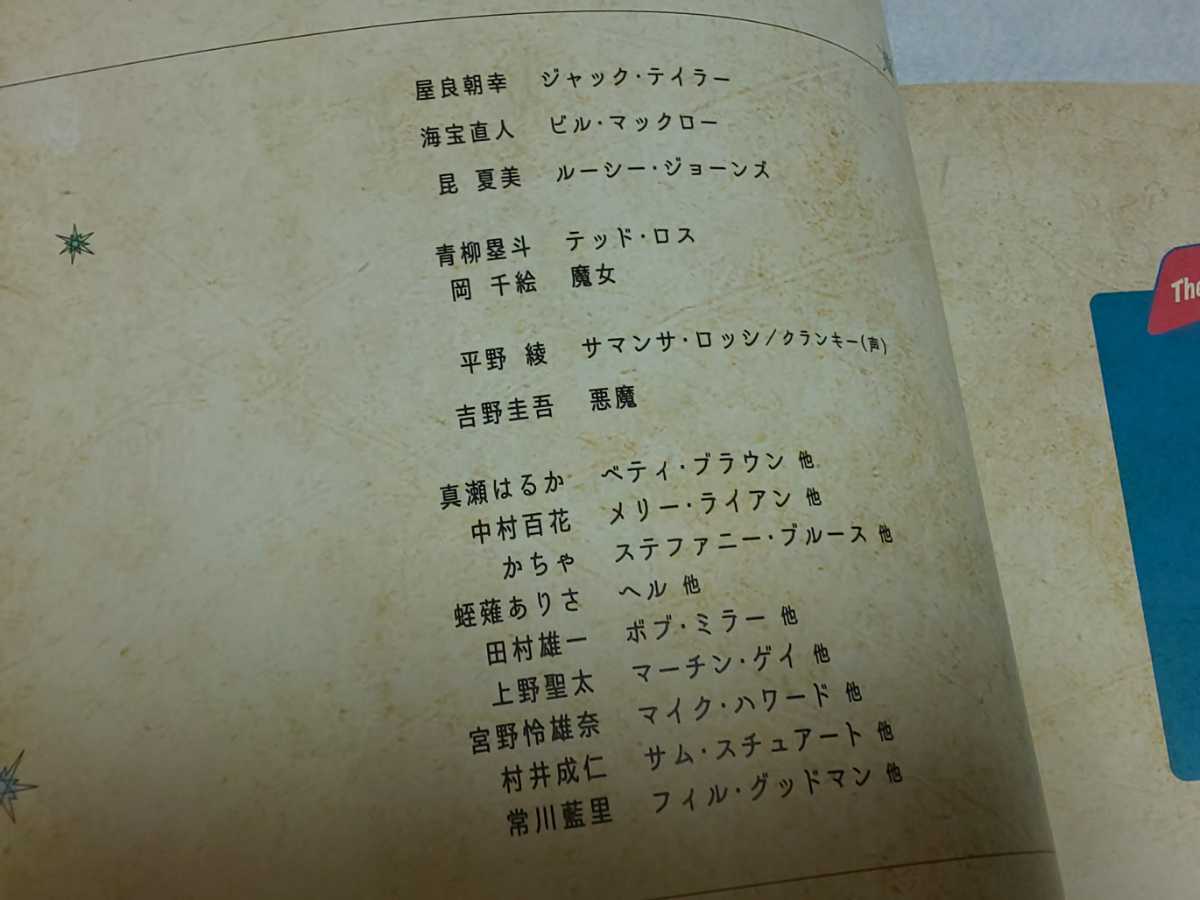 屋良朝幸　ジャック・テイラー
海宝直人　ビル・マックロー
昆 夏美　ルーシー・ジョーンズ
青柳塁斗　テッド・ロス
岡 千絵　魔女
平野 綾　サマンサ・ロッシ/クランキー(声)
吉野圭吾　悪魔
真瀬はるか　ベティ・ブラウン 他
中村百花　メリー・ライアン 他
かちゃ　ステファニー・ブルース 他
蛭薙ありさ　ヘル 他
田村雄一　ボブ・ミラー 他
上野聖太　マーチン・ゲイ 他
宮野怜雄奈　マイク・ハワード 他
村井成仁　サム・スチュアート 他
常川藍里　フィル・グッドマン 他
The